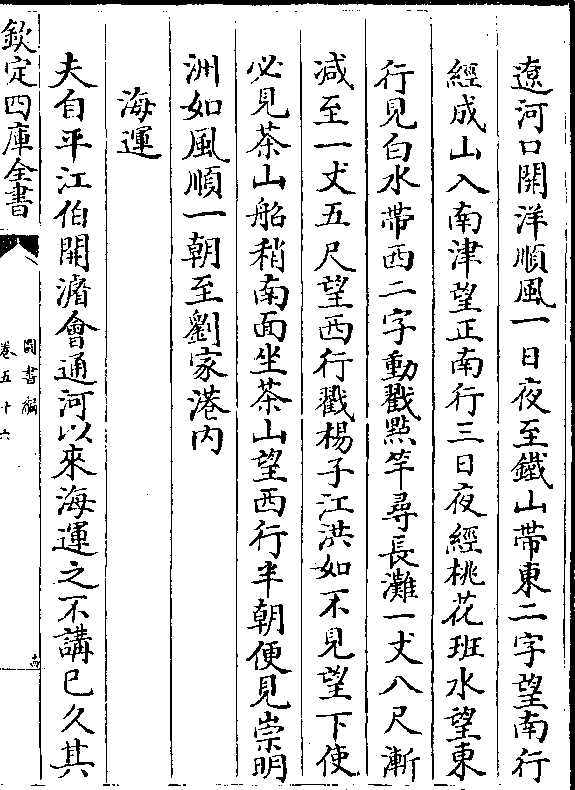 遼河口開洋順風一日夜至鐵山帶東二字望南行
經成山入南津望正南行三日夜經桃花班水望東
行見白水帶西二字動戳點竿尋長灘一丈八尺漸
減至一丈五尺望西行戳楊子江洪如不見望下使
必見茶山船稍南面坐茶山望西行半朝便見崇明
洲如風順一朝至劉家港内
海運
夫自平江伯開濬會通河以來海運之不講已久其
欽定四庫全書
圖書編
卷五十六